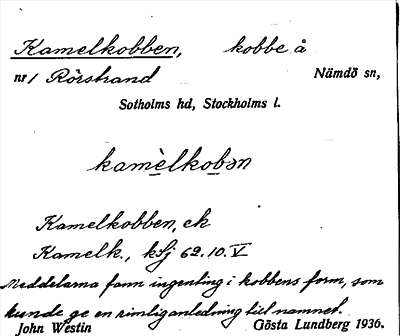 Kamelkobben, kobbe å
nr 1 Rörstrand Nämdö sn,
Sotholms hd, Stockholms l.
kamèlkobən
Kamelkobben, ek
Kamelk., ksj 62.10.V
Meddelarna fann ingenting i kobbens form, som
kunde ge en rimlig anledning till namnet.
John Westin Gösta Lundberg 1936.